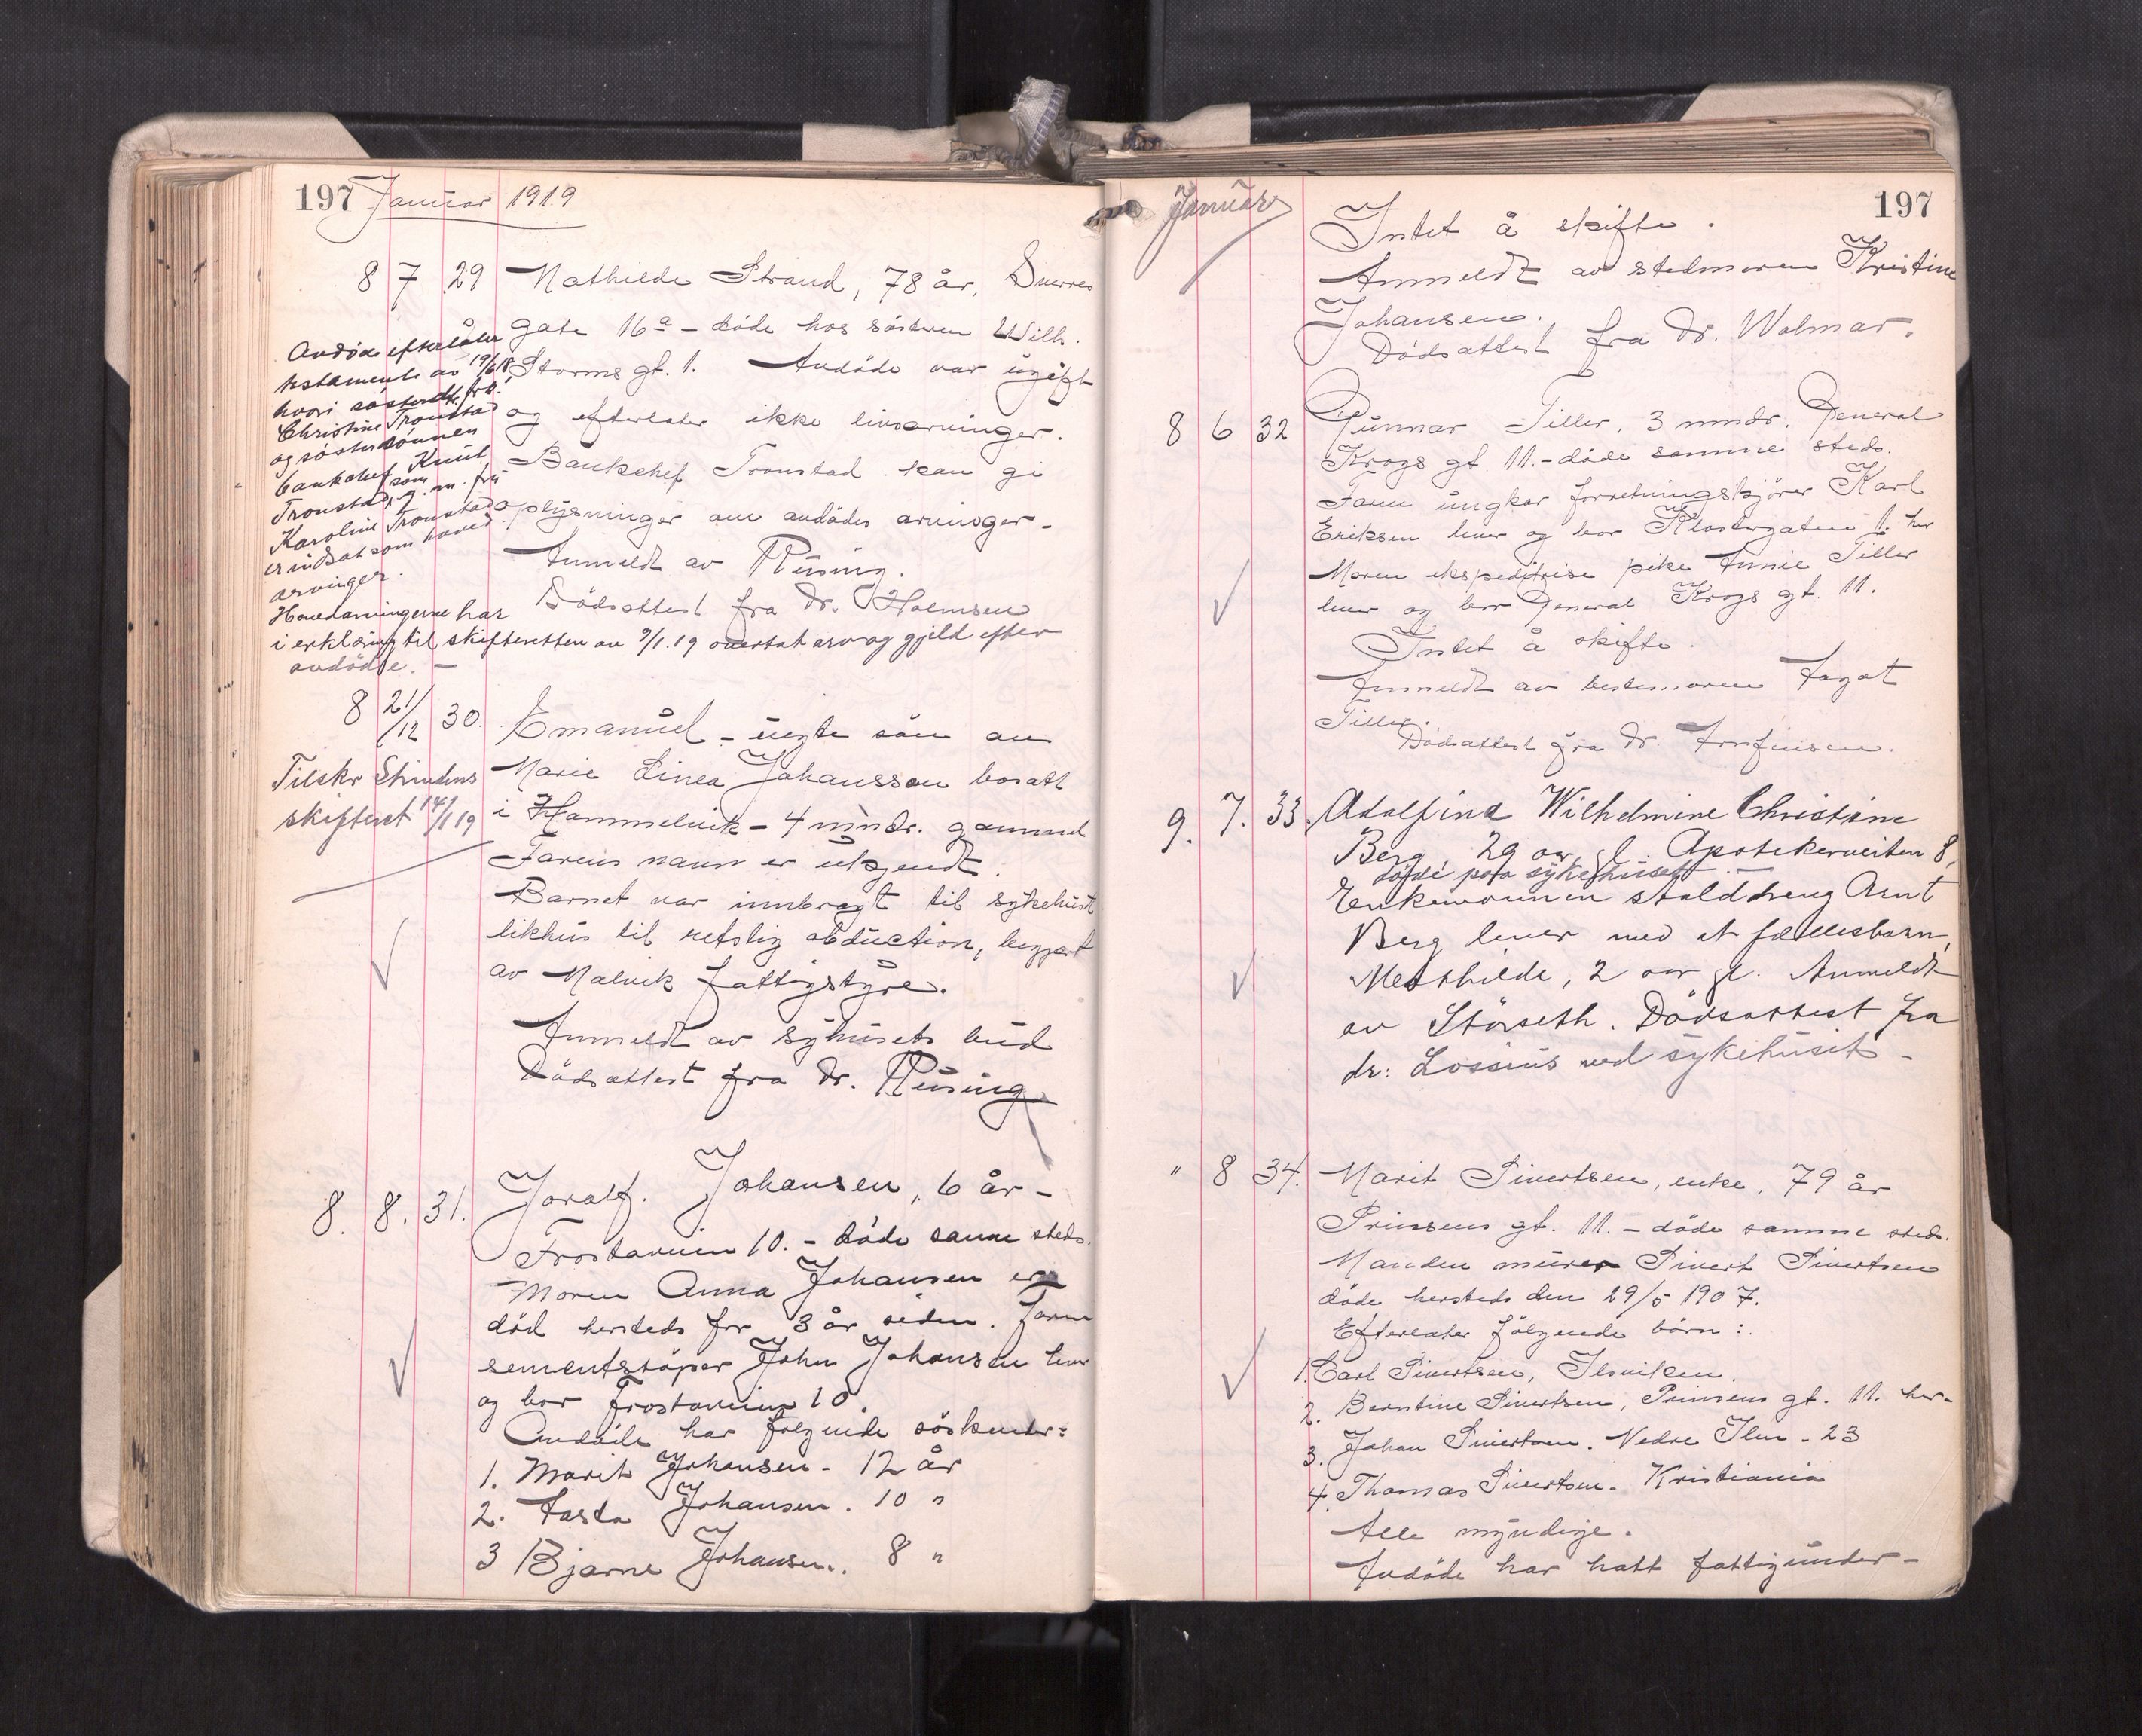 197 Januar 1919
8 7 29 Mathilde Strand, 78 år, Sverres
gate 16a - døde hos søsteren Wilh.
Storms gt. 1. Avdøde var ugift
og efterlater ikke livsarvinger.
Bankchef Tronstad kan gi
oplysninger om avdødes arvinger.
Anmeldt av Rüsing.
Dødsattest fra Dr. Holmsen
Avdøde efterlater
testamente av 19/6 18
hvori søsterdtr. frk.
Christine Tronstad
og søstersønnen
bankchef Knut
Tronstad, som g. m. fru
Karoline Tronstad
er indsat som hoved
arvinger.
Hovedarvingerne har
i erklæring til skifteretten av 9/1.19 overtat arv og gjeld efter
avdøde. -
8 21/12 30. Emanuel - uegte søn av
Marie Linea Johansson bosatt
i Hammelvik - 4 mndr. gammel
Farens navn er ukjendt.
Barnet var innbragt til sykehust
likhus til retslig obduction, begjært
av Malvik fattigstyre.
Anmeldt av sykusets bud
Dødsattest fra Dr. Rüsing
Tilskr Strindens
skifteret 14/1 19
8. 8. 31. Joralf. Johansen, 6 år -
Frostaveien 10. - døde samme steds.
Moren Anna Johansen er
død hersteds for 3 år siden. Faren
sementstøper John Johansen lever
og bor Frostaveien 10.
Avdøde har følgende søskender:
1. Marit Johansen - 12 år
2. Aasta Johansen. 10 "
3 Bjarne Johansen. 8 "
Januar 197
Intet å skifte.
Anmeldt av stedmoren Kristine
Johansen.
Dødsattest fra Dr. Wolmar.
8 6 32 Gunnar Tiller, 3 mndr. General
Krogs gt 11. - døde samme steds.
Faren ungkar forretningskjører Karl
Eriksen lever og bor Klostergaten 1. her
Moren ekspeditrise pike Annie Tiller
lever og bor General Krogs gt. 11.
Intet å skifte.
Anmeldt av bestemoren Aagot
Tiller.
Dødsattest fra Dr. Arnfinsen.
9. 7. 33. Adolfine Wilhelmine Christine
Berg 29 aar gl. Apotekerveiten 8,
døde paa sykehuset -
Enkemannen stalddreng Arnt
Berg lever med et fællesbarn,
Mathilde, 2 aar gl. Anmeldt
av Störseth. Dødsattest fra
dr: Lossius ved sykehuset -
" 8 34. Marit Sivertsen, enke, 79 år
Prinsens gt. 11. - døde samme steds.
Manden murer Sivert Sivertsen
døde hersteds den 29/5 1907.
Efterlater følgende børn:
1. Carl Sivertsen, Ilsvikøen.
2. Berntine Sivertsen, Prinsens gt. 11. her-
3. Johan Sivertsen. Nedre Ilen - 23
4. Thomas Sivertsen. Kristiania
Alle myndige.
Avdøde har hatt fattigunder-